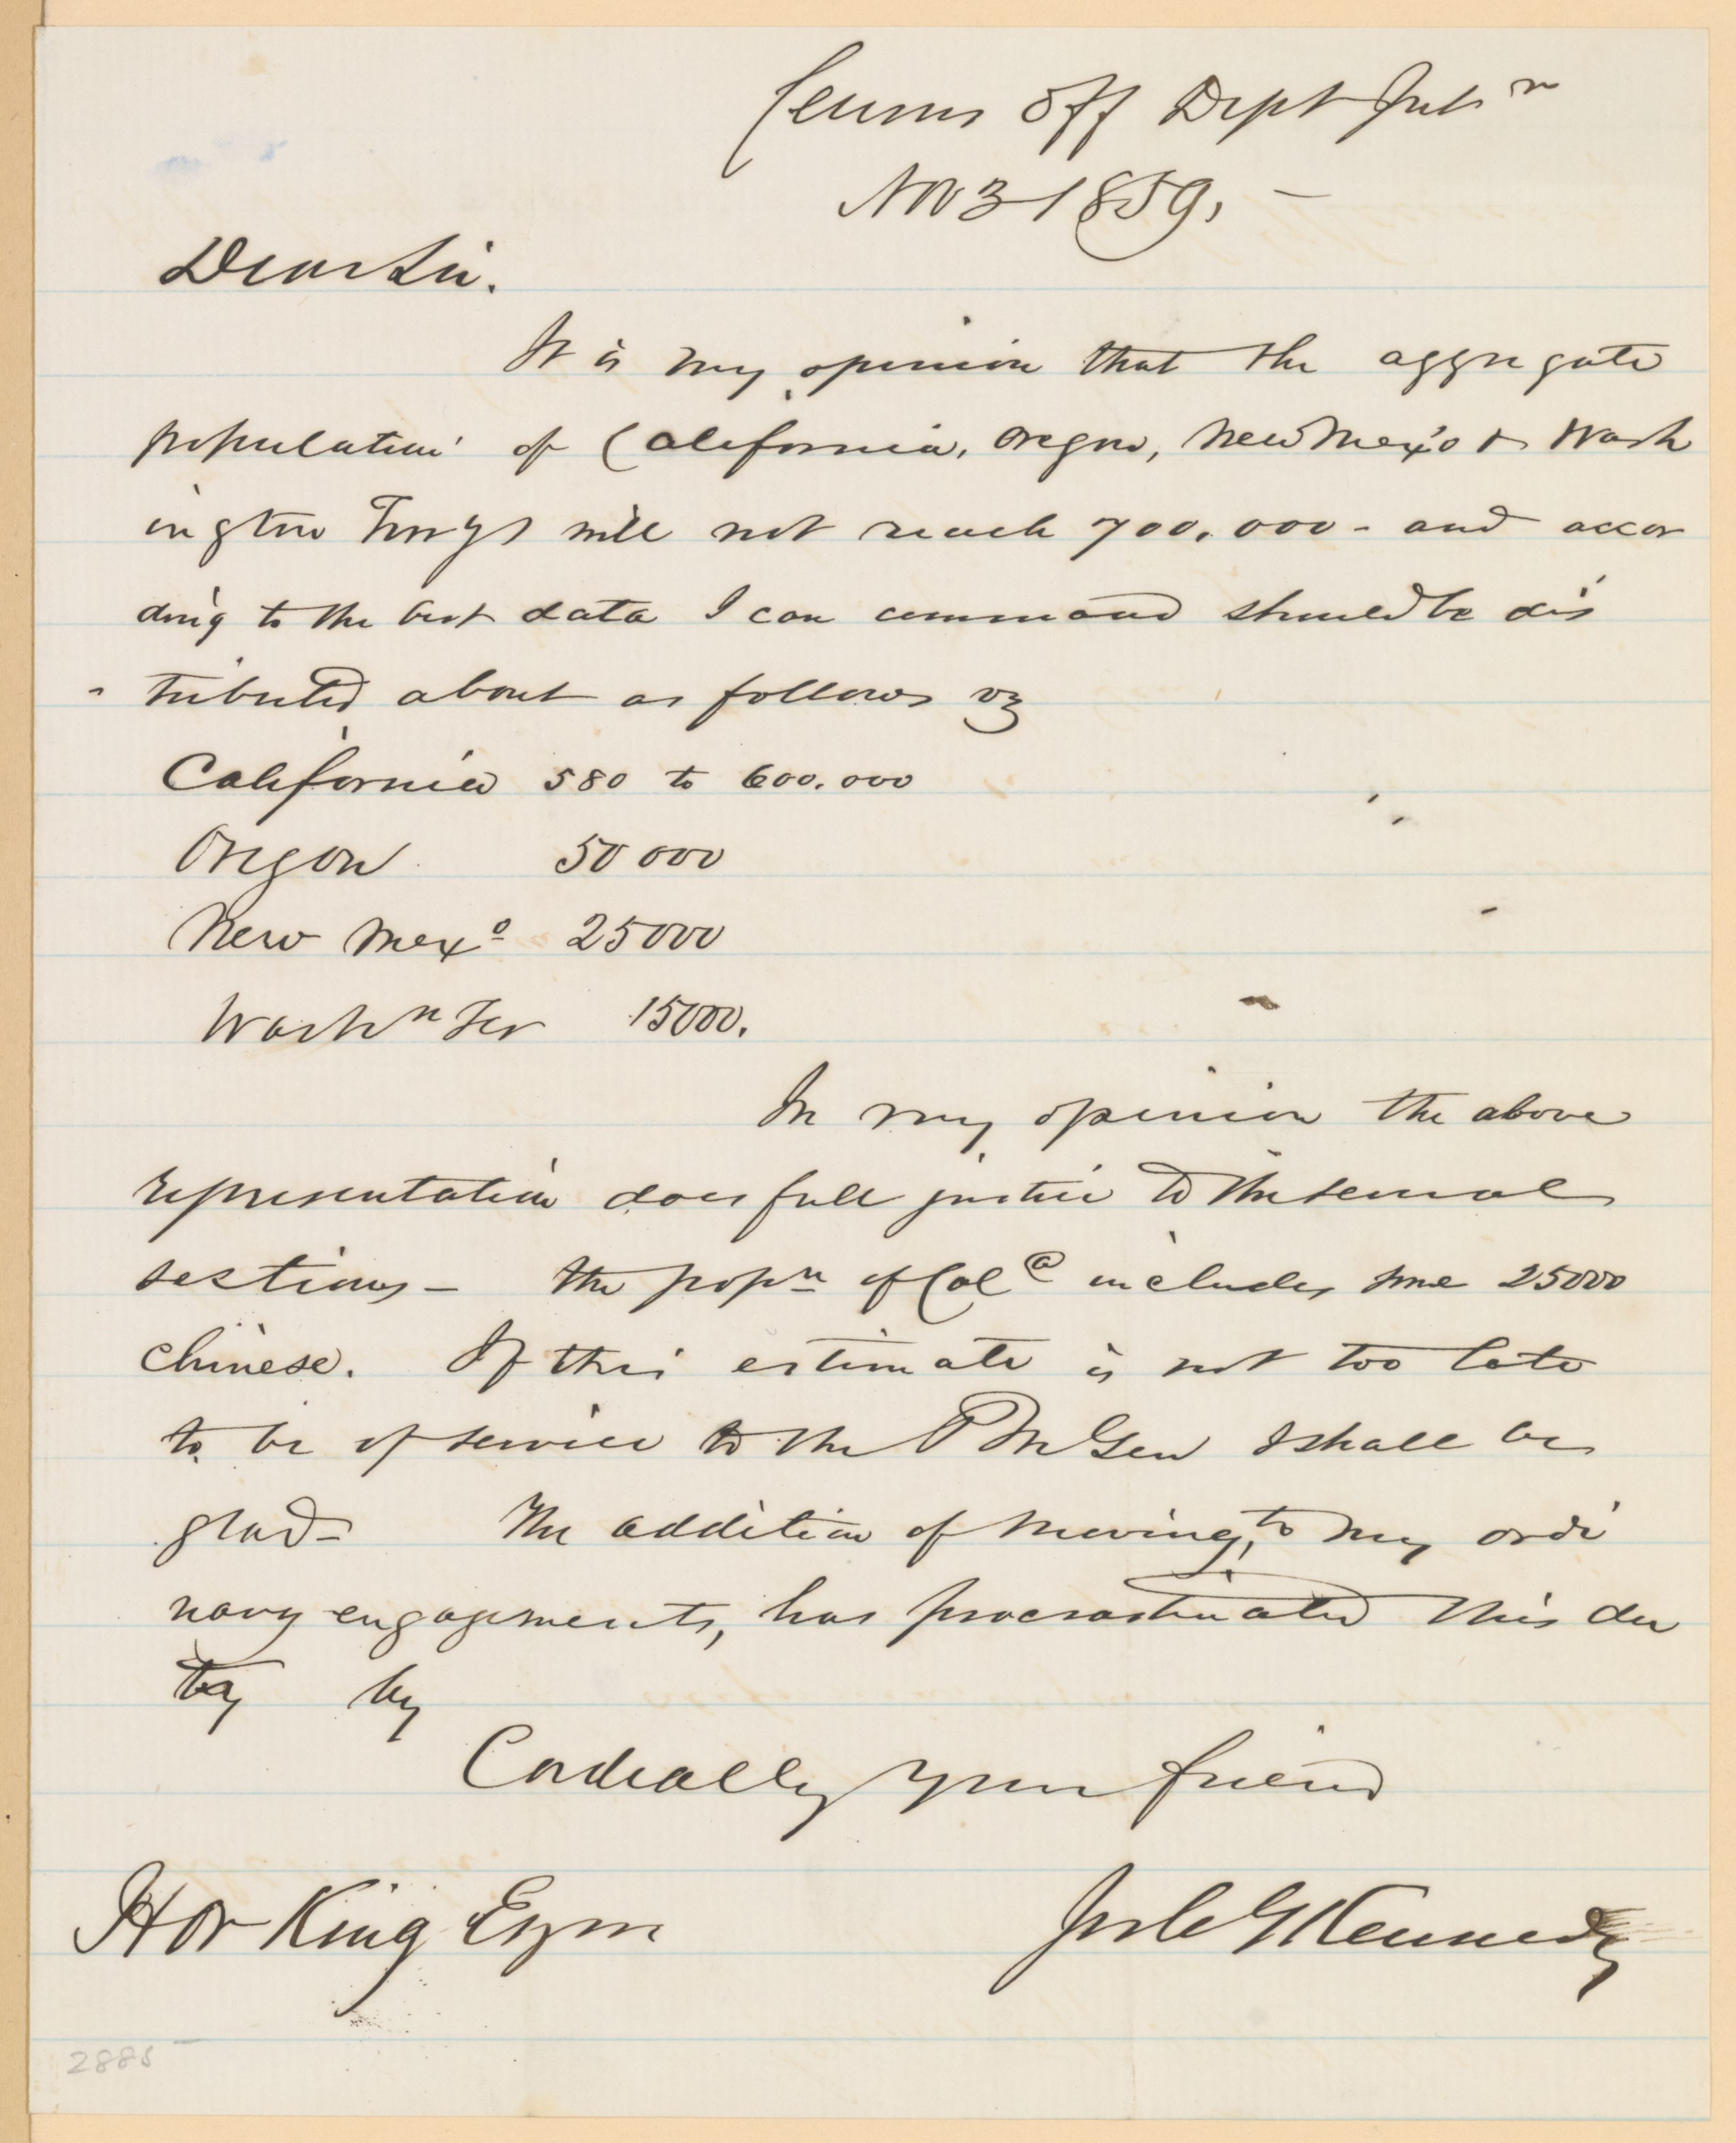 Census Off Dept Intr
Nov 3 1859. –
Dear Sir.
It is my opinion that the aggregate
population of California, Oregon, New Mexo & Wash
ington Terrys will not reach 700,000 - and accor
ding to the best data I can command should be dis
- tributed about as follows viz
California 580 to 600.000
Oregon 50 000
New Mexo 25000
Washn Ter 15000.
In my opinion the above
representation does full justice to the several
sections – the popn of Cala includes some 25000
Chinese. If this estimate is not too late
to be of service to the P M Gen I shall be
glad – The addition of moving, to my ordi
nary engagements, has procrastinated this du
ty by
Cordially your friend
Hor King Esqr
Jos C G Kennedy
2885